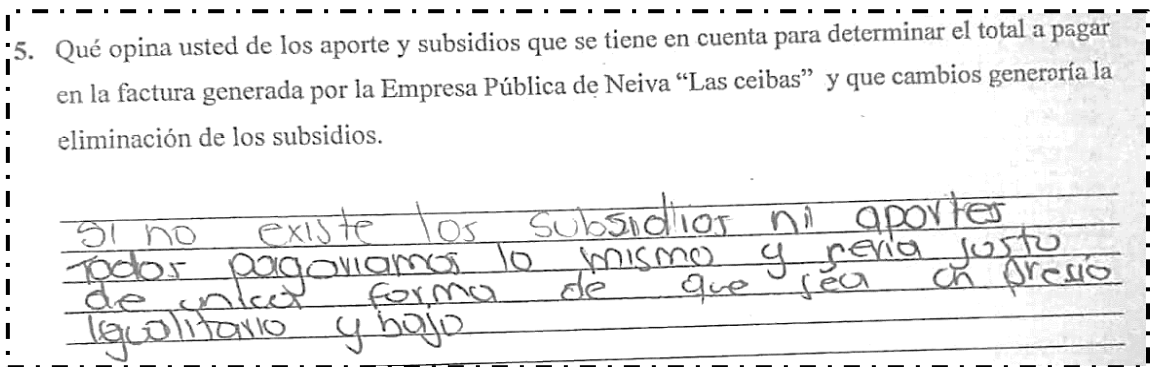 5. Qué opina usted de los aporte y subsidios que se tiene en cuenta para determinar el total a pagar
en la factura generada por la Empresa Pública de Neiva “Las ceibas” y que cambios generaría la
eliminación de los subsidios.
Si no existe los subsidios ni aportes
Todos pagariamos lo mismo y seria justo
de unica forma de que sea un presio
Igualitario y bajo